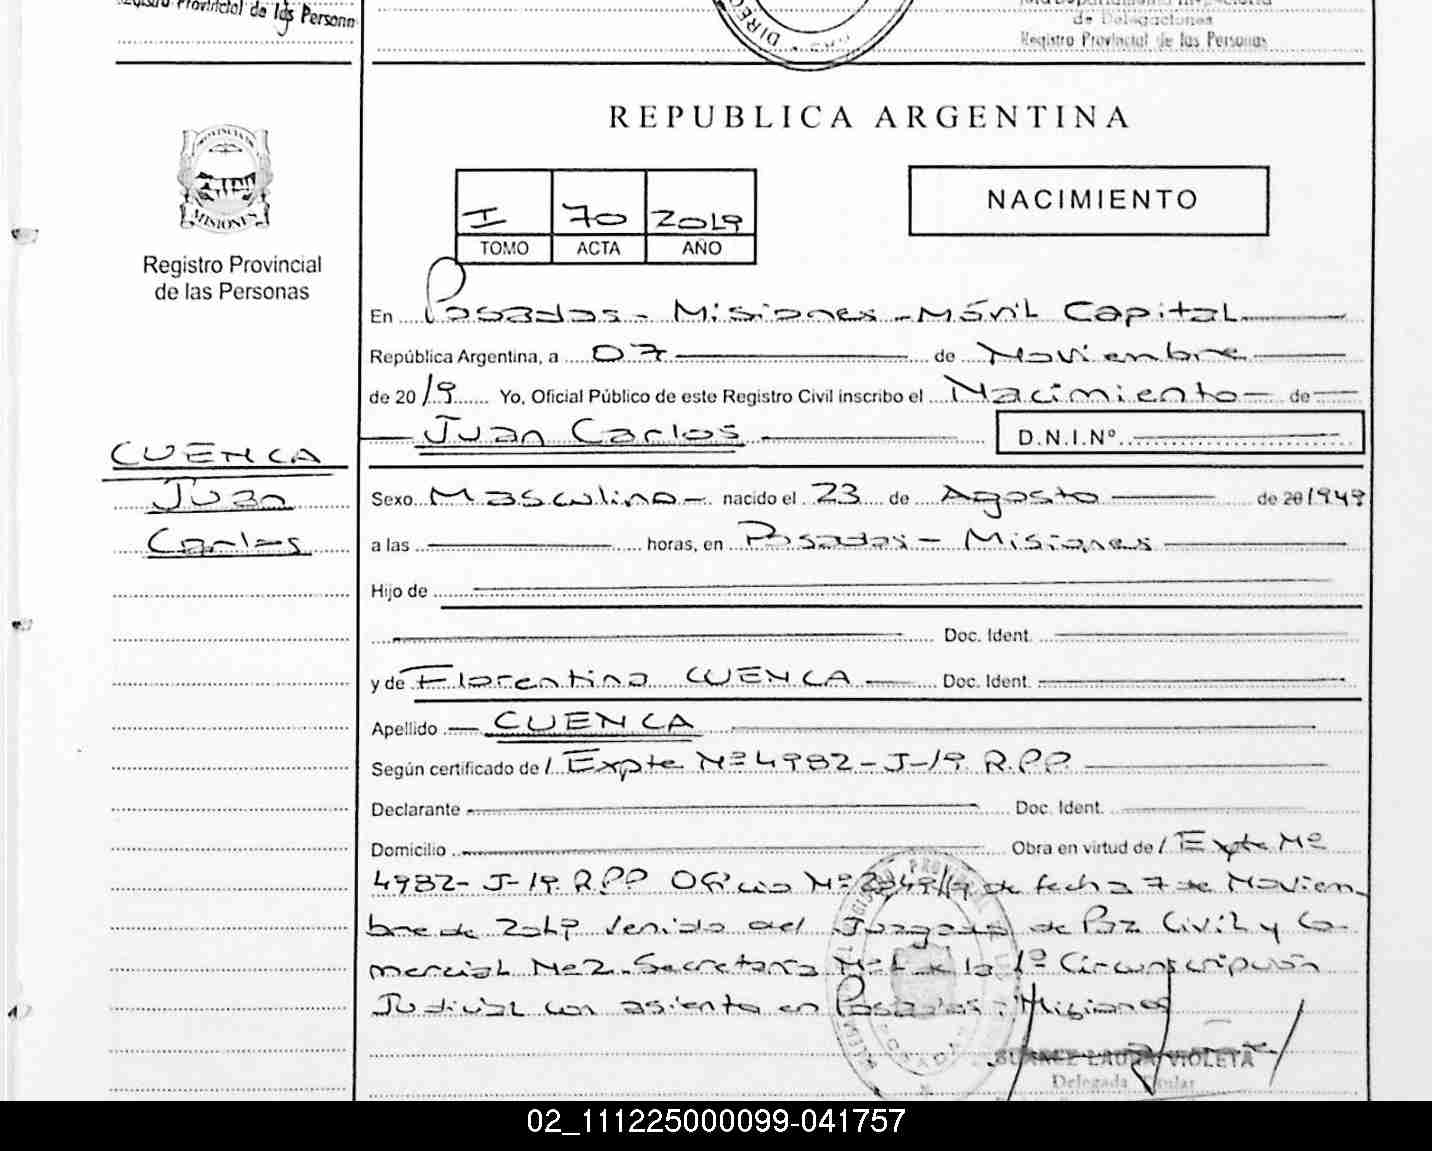 Registro Provincial de las Personas
de Delegaciones
Registro Provincial de las Personas
REPUBLICA ARGENTINA
PROVINCIA DE
MISIONES
Registro Provincial
de las Personas
I 70 2019
TOMO ACTA AÑO
NACIMIENTO
En Posadas - Misiones - Móvil Capital
República Argentina, a 07 de Noviembre
de 2019 Yo, Oficial Público de este Registro Civil inscribo el Nacimiento de
Juan Carlos D.N.I.Nº
CUENCA
Juan
Carlos
Sexo Masculino nacido el 23 de Agosto de 20 1949
a las horas, en Posadas - Misiones
Hijo de
Doc. Ident.
y de Florentino CUENCA Doc. Ident.
Apellido CUENCA
Según certificado de / Expte Nº 4982-J-19 R.P.P
Declarante Doc. Ident.
Domicilio Obra en virtud de / Expte Nº
4982-J-19 R.P.P Oficio Nº de fecha 7 de Noviem
bre de 2019 venido del Juzgado de Paz Civil y Co-
mercial Nº2 Secretaría Nº1 de la 1º Circunscripción
Judicial con asiento en Posadas - Misiones
SUAREZ LAURA VIOLETA
Delegada Titular
02_111225000099-041757